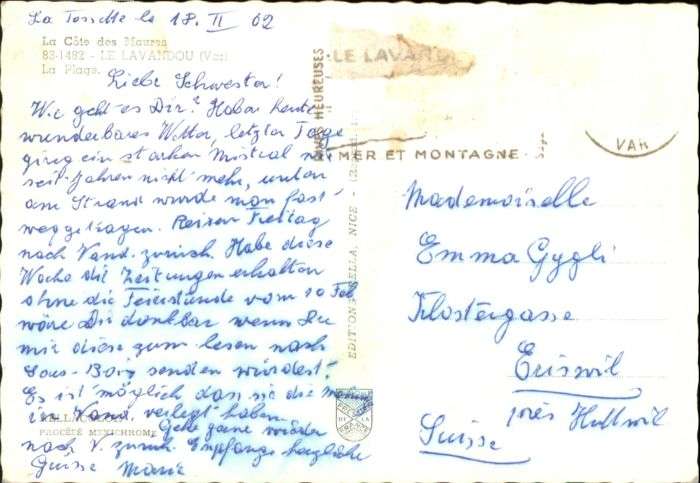 La le 18. II 62
La Côte des Maures
83-1482 - LE LAVANDOU (Var)
La Plage.
Liebe Schwester!
Wie geht es Dir? Haben heute
wunderbares Wetter, letzter Tage
ging ein starken Mistral wie
seit Jahren nicht mehr, unten
am Strand wurde man fast
weggetragen. Reisen Freitag
nach Vand. zurück. Habe diese
Woche die Zeitungen erhalten
ohne die Feierstunde vom 10 Feb
wäre Dir dankbar wenn Du
mir diese zum lesen nach
senden würdest!
Es ist möglich dass sie die mir
in Vand. verlegt haben.
Gehe gerne wieder
PROCÉTÉ MEXICHROME
nach V. zurück. Empfange herzliche
Grüsse Marie
LE LAVAND
HEUREUSES
MER ET MONTAGNE
VAR
NICE
Mademoiselle
Emma Gygli
Klostergasse
Eriswil
près Huttwil
Suisse